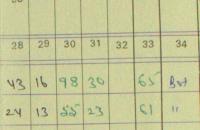 28 29 30 31 32 33 34
43 16 98 30 65
24 13 55 23 61 "